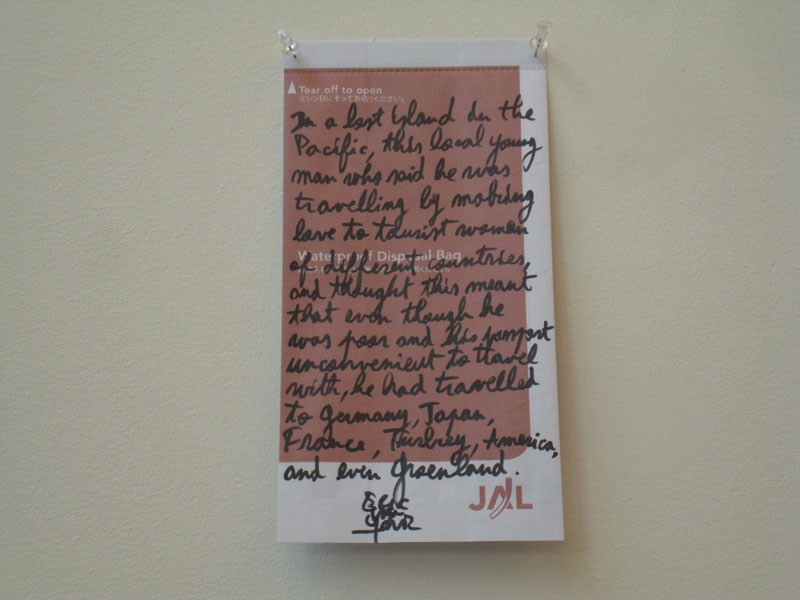 Tear off to open
ミシン目にそってお切りください。
In a lost island in the
Pacific, this local young
man who said he was
travelling by making
love to tourist women
Waterproof Disposal Bag
of different countries,
and thought this meant
that even though he
was poor and his passport
unconvenient to travel
with, he had travelled
to Germany, Japan,
France, Turkey, America,
and even Groenland.
JAL